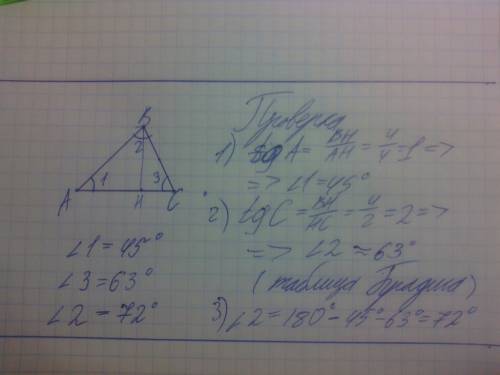 B
2
1
3
A
H
C
∠1 = 45°
∠3 = 63°
∠2 = 72°
Проверка
1) tg A = BH/AH = 4/4 = 1 =>
=> ∠1 = 45°
2) tg C = BH/HC = 4/2 = 2 =>
=> ∠2 ≈ 63°
(таблица Брадиса)
3) ∠2 = 180° - 45° - 63° = 72°